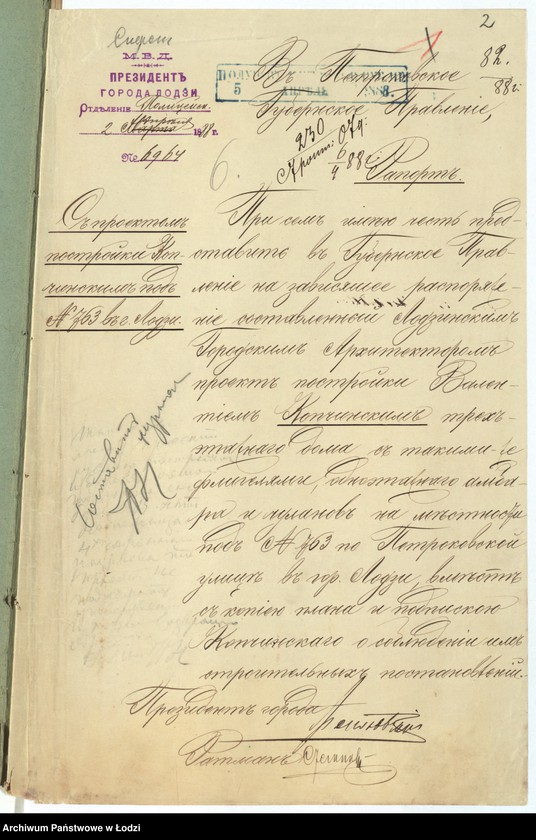 2
Спѣшно
М.В.Д.
ПРЕЗИДЕНТЪ
ГОРОДА ЛОДЗИ
ОТДѢЛЕНІЕ Полицейск.
2 Апрѣля 1888 г.
№ 6964
82
88 г.
Въ Петроковское
Губернское Правленіе,
5 АПРѢЛЯ 1888.
230
6.
Рапортъ.
Съ проектомъ
постройки Коп-
чинскимъ подъ
№ 763 въ г. Лодзи.
При семъ имѣю честь пред-
ставить въ Губернское Прав-
леніе на зависящее распоряже-
ніе составленный Лодзинскимъ
Городскимъ Архитекторомъ
проектъ постройки Вален-
тіемъ Копчинскимъ трехъ-
этажнаго дома съ такими-же
флигелями, одноэтажнаго амба-
ра и чулановъ на мѣстности
подъ № 763 по Петроковской
улицѣ въ гор. Лодзи, вмѣстѣ
съ копіею плана и подпискою
Копчинскаго о соблюденіи имъ
строительныхъ постановленій.
Составить
журналъ
Президентъ города
Ратманъ
Archiwum Państwowe w Łodzi